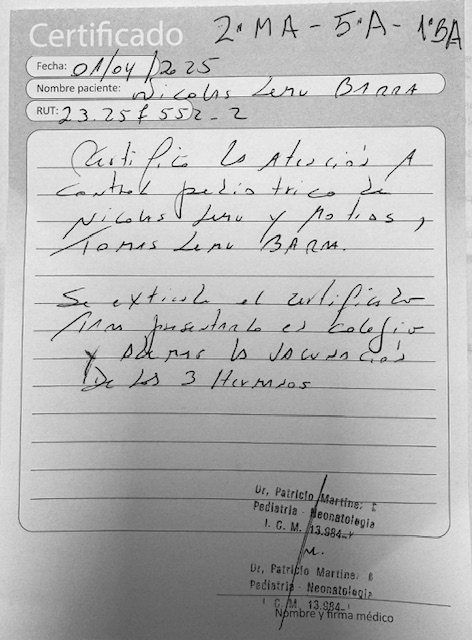 Certificado 2º MA - 5ºA - 1ºBA
Fecha: 01/04/2025
Nombre paciente: Nicolas Lemu BARRA
RUT: 23.257 552-2
Certifico la Atención A
Control pediatrico de
Nicolas Lemu y Matias,
Tomas Lemu BARRA.
Se extiende el certificado
para presentarlo en colegio
y Además la vacunación
De los 3 Hermanos
Dr. Patricio Martinez
Pediatria - Neonatologia
I. C. M. 13.984-
Dr. Patricio Martinez
Pediatria - Neonatologia
I. C. M. 13.984-
Nombre y firma médico